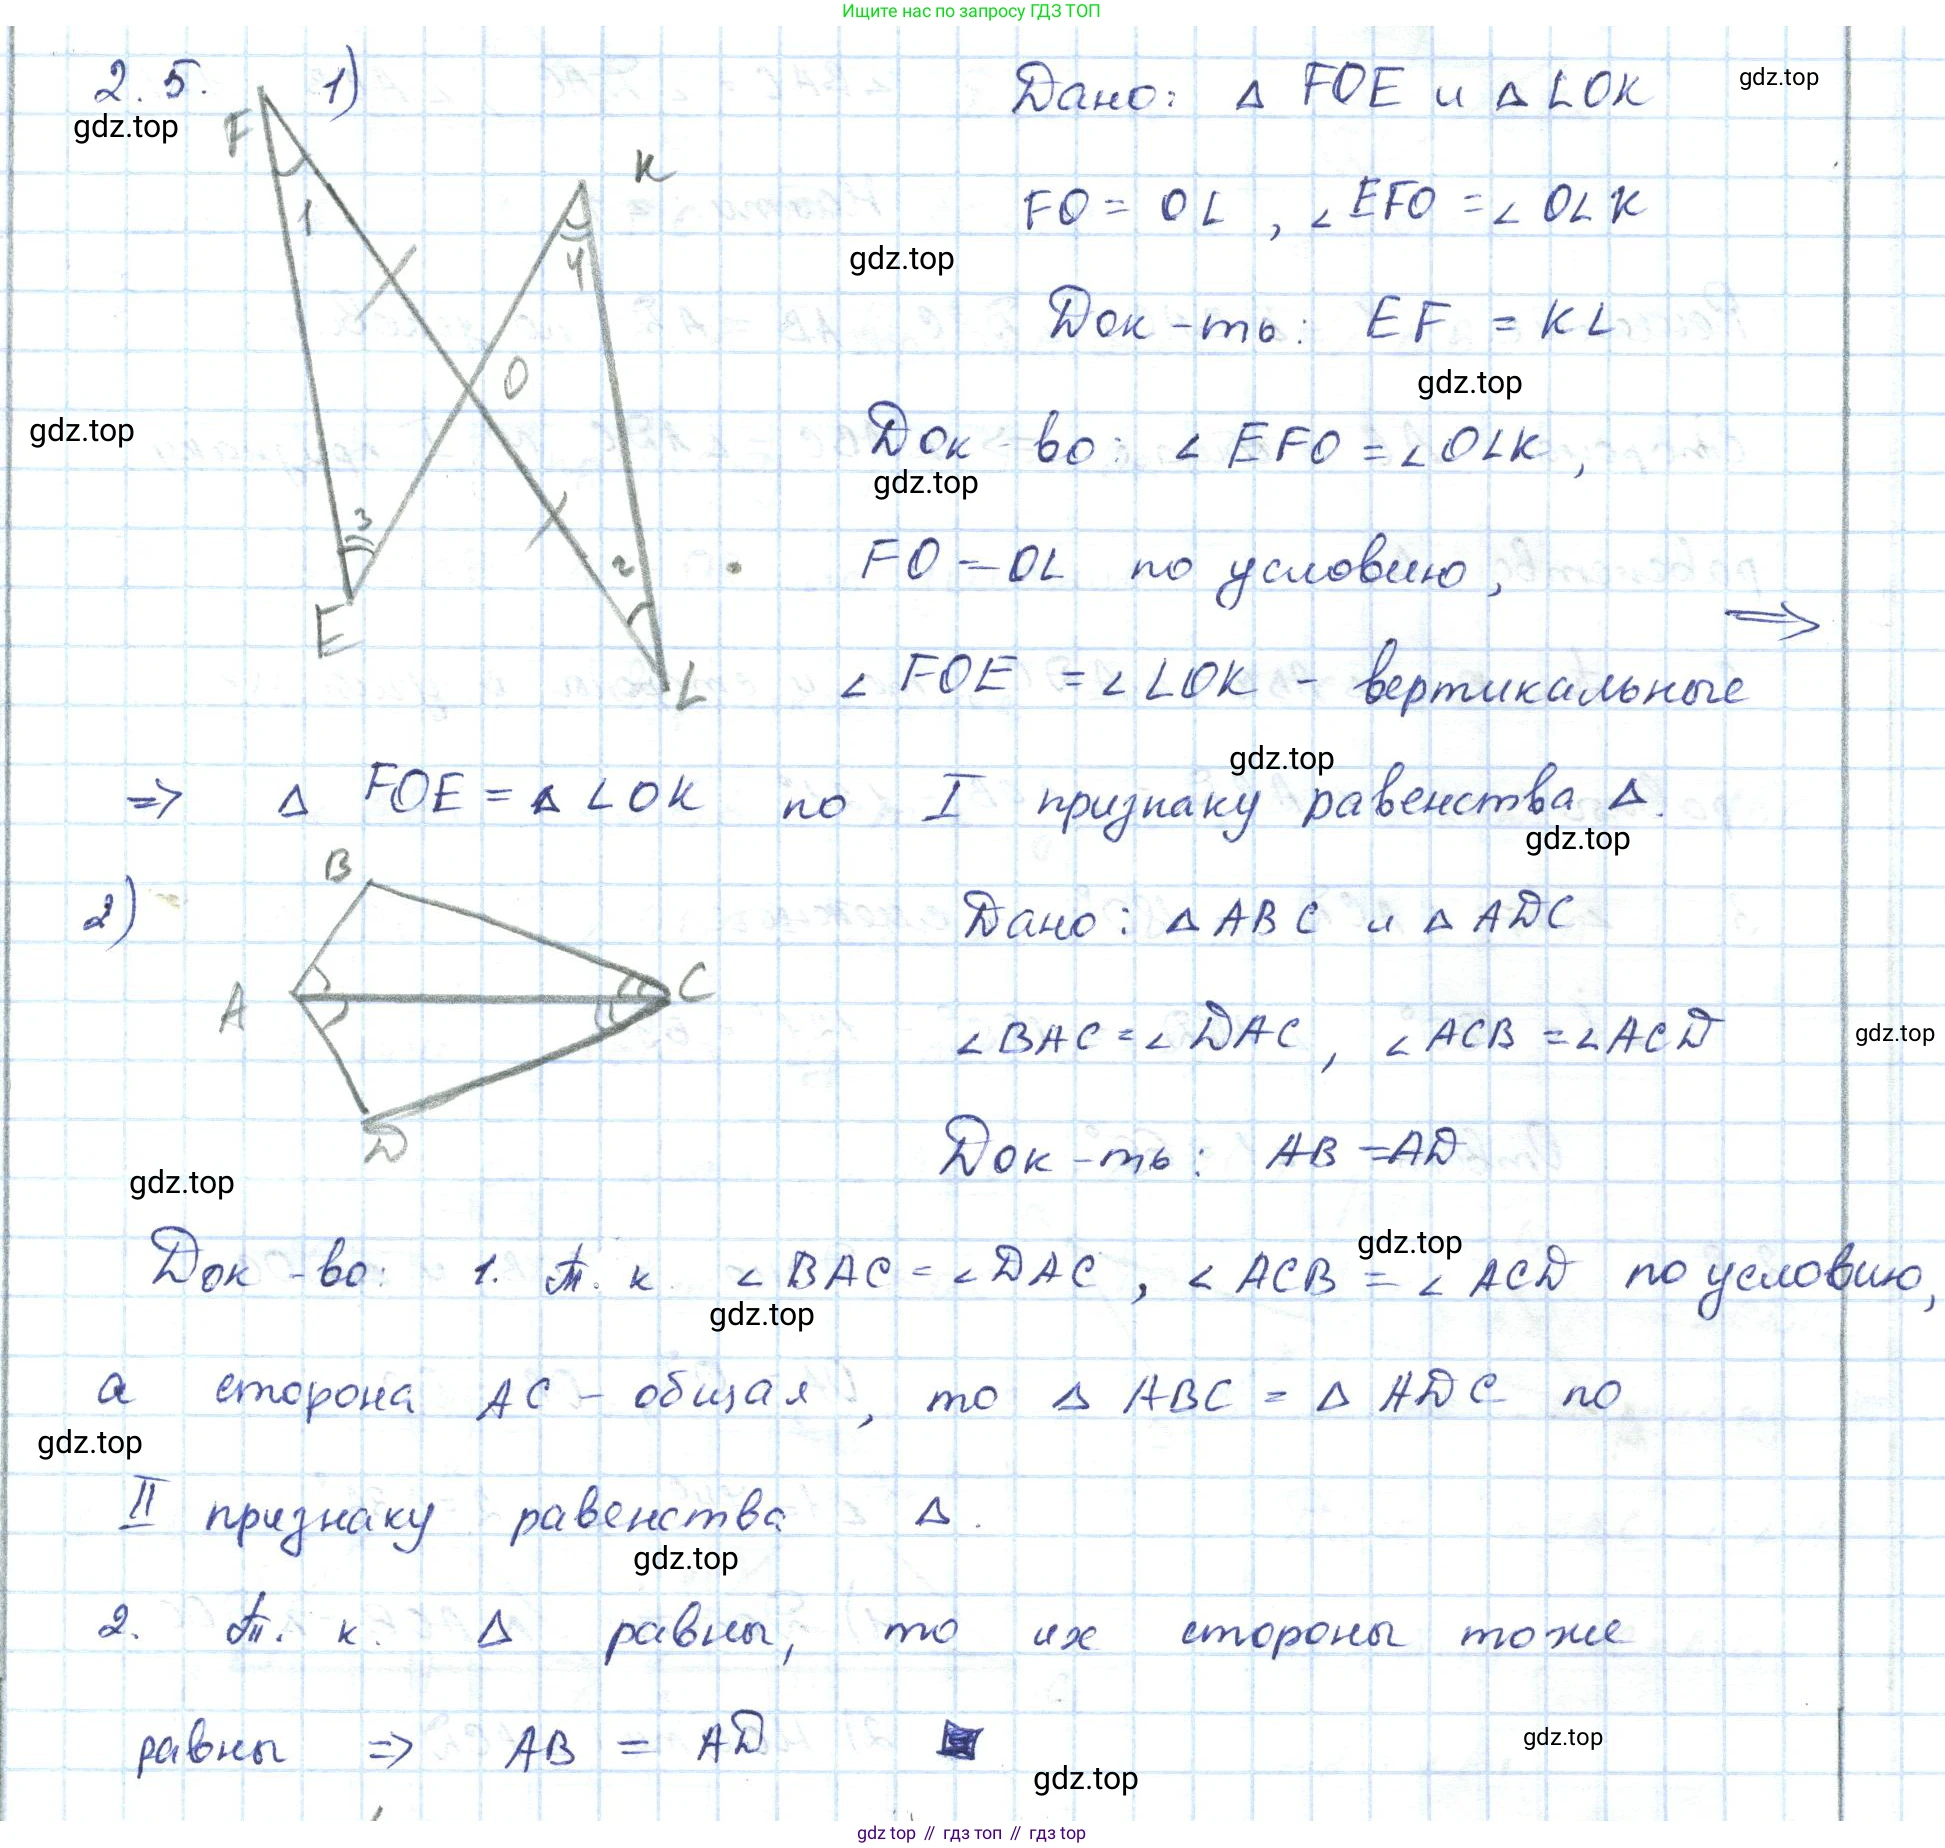 Ищите нас по запросу ГДЗ ТОП
2.5. 1) Дано: Δ FOE и Δ LOK
gdz.top
gdz.top
F
K
1
FO = OL, ∠EFO = ∠OLK
4
gdz.top
Док-ть: EF = KL
O
gdz.top
gdz.top
Док-во: ∠EFO = ∠OLK,
gdz.top
3
2
FO = OL по условию,
⇒
E
L
∠FOE = ∠LOK - вертикальные
gdz.top
⇒ Δ FOE = Δ LOK по I признаку равенства Δ.
gdz.top
2) B
Дано: Δ ABC и Δ ADC
A
C
∠BAC = ∠DAC, ∠ACB = ∠ACD
gdz.top
D
Док-ть: AB = AD
gdz.top
gdz.top
Док-во: 1. Т.к. ∠BAC = ∠DAC, ∠ACB = ∠ACD по условию,
gdz.top
а сторона AC - общая, то Δ ABC = Δ ADC по
gdz.top
II признаку равенства Δ.
gdz.top
2. Т.к. Δ равны, то их стороны тоже
равны ⇒ AB = AD
gdz.top
gdz.top
gdz top // гдз топ // gdz top